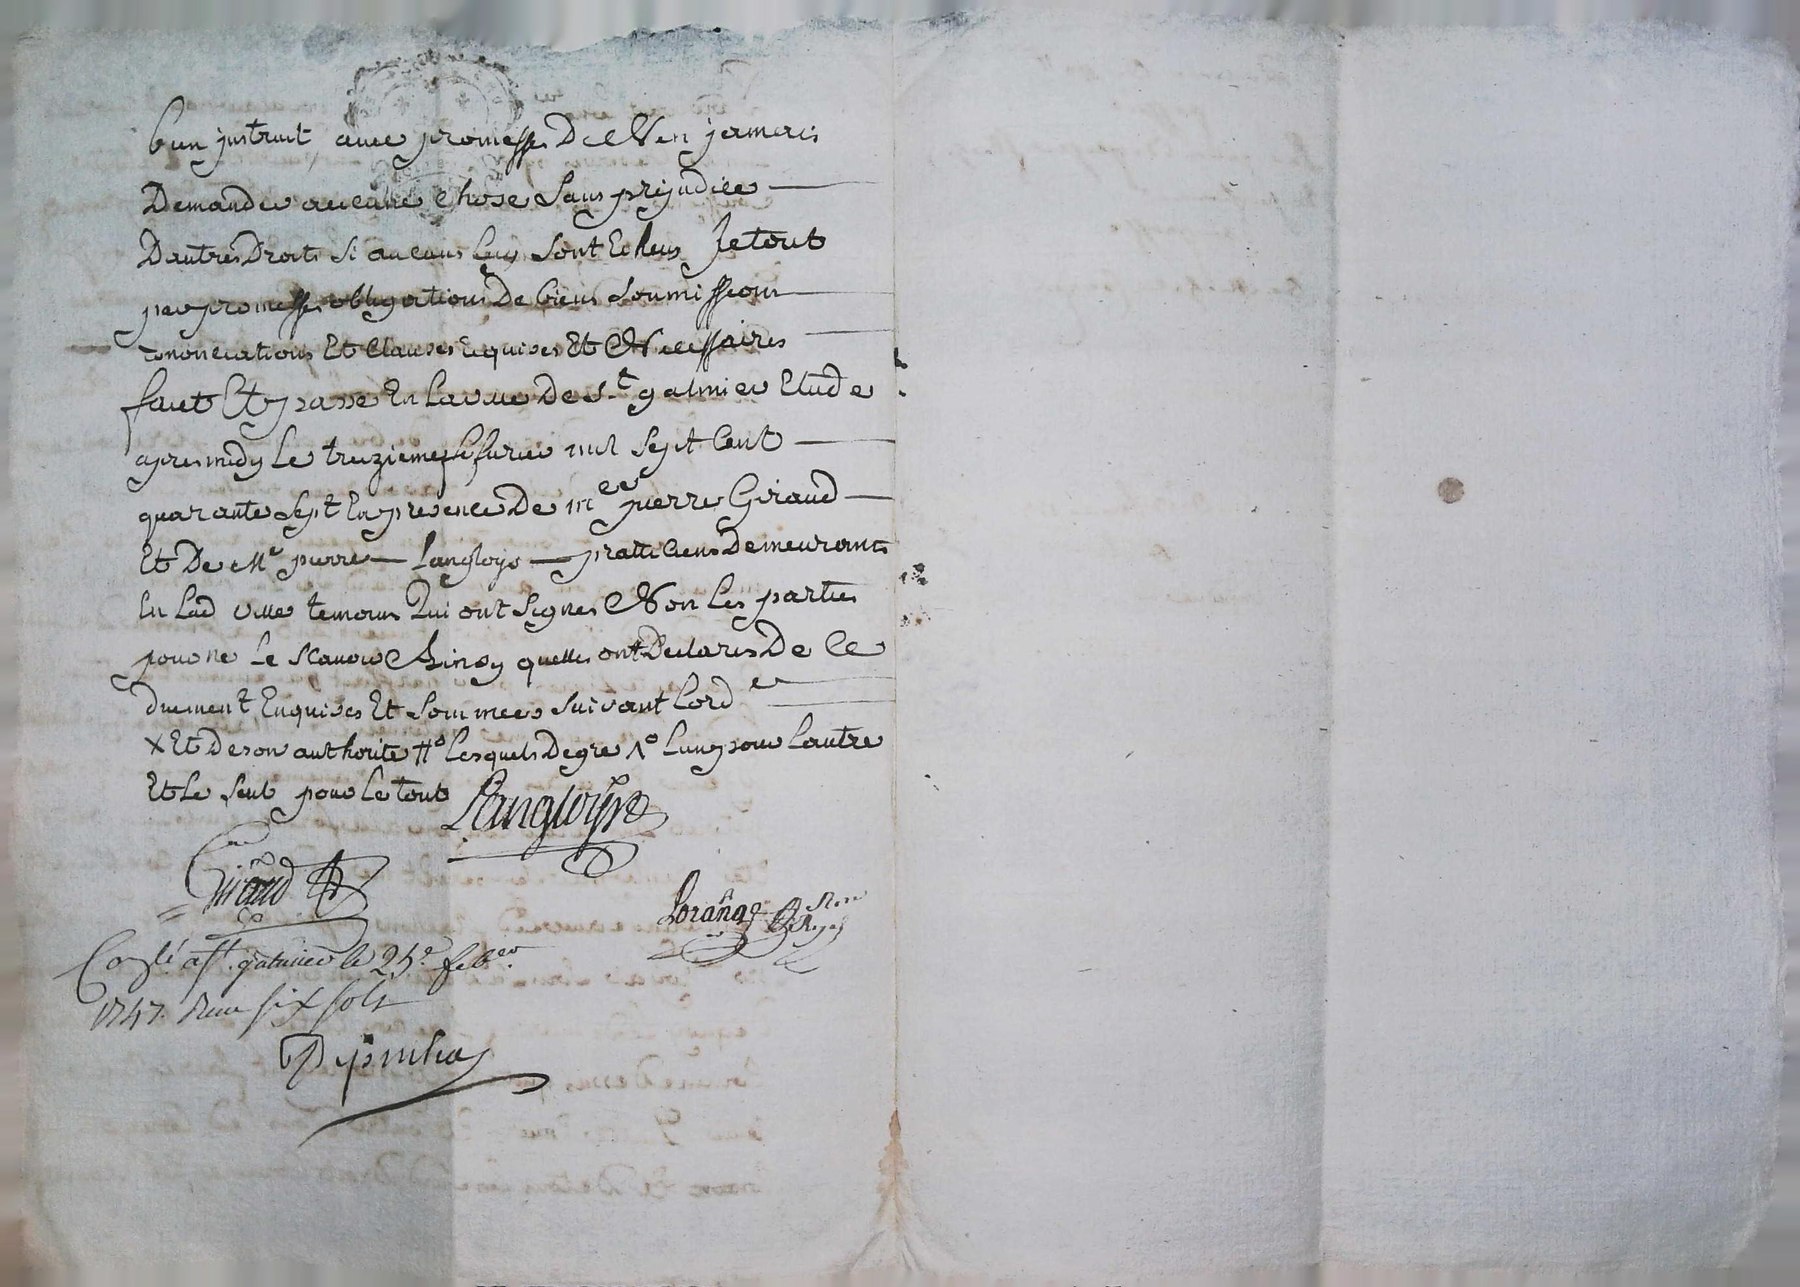 bien jnstruit, avec promesse De N'en jamais
Demander aucune Chose Sans préjudice
Dautres Droits Si aucuns luy Sont Echeus Je tout
par promesses obligations De biens Soumissions
renonciations Et Clauses requises Et Necessaires
fait Et passé En la ville De St galmier Etude
apres midy Le treizieme fevrier mil Sept Cent
quarante Sept En presence De me pierre Giraud
Et De Me pierre Langloys praticiens Demeurants
En Lad ville temoins Qui ont Signes Non Les parties
pour ne Le Scavoir Ainsy quelles ont Declarés De Ce
Duement Enquises Et Sommees Suivant Lord
X Et De son authorité # Lesquels De gré Lun pour Lautre
Et Le Seul pour Le tout
Langloys
Giraud
Contlé a St. galmier le 25e feber
1747. Reçu six sols